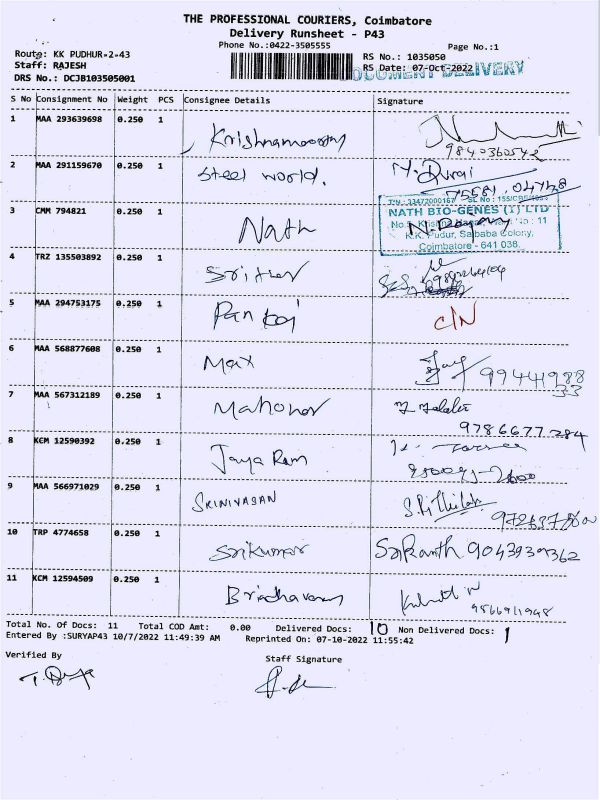 THE PROFESSIONAL COURIERS, Coimbatore
Delivery Runsheet - P43
Phone No.:0422-3505555
Page No.:1
Route: KK PUDHUR-2-43
RS No.: 1035050
Staff: RAJESH
RS Date: 07-Oct-2022
DOCUMENT DELIVERY
DRS No.: DCJB103505001
S No Consignment No Weight PCS Consignee Details Signature
1 MAA 293639698 0.250 1 Krishnamoorthy
9840360542
2 MAA 291159670 0.250 1 Steel world. N. Durai
75581, 04748
3 CMM 794821 0.250 1 Nath
NATH BIO-GENES (I) LTD
K.K. Pudur, Saibaba Colony,
Coimbatore - 641 038.
4 TRZ 135503892 0.250 1 Sridhar
5 MAA 294753175 0.250 1 Pankaj C/N
6 MAA 568877608 0.250 1 Max 99441988
33
7 MAA 567312189 0.250 1 Mahohar
9786677284
8 KCM 12590392 0.250 1 Jaya Ram
9 MAA 566971029 0.250 1 SRINIVASAN
10 TRP 4774658 0.250 1 Srikumar Srikanth 9043939362
11 KCM 12594509 0.250 1
9566911948
Total No. Of Docs: 11 Total COD Amt: 0.00 Delivered Docs: 10 Non Delivered Docs: 1
Entered By :SURYAP43 10/7/2022 11:49:39 AM Reprinted On: 07-10-2022 11:55:42
Verified By
Staff Signature